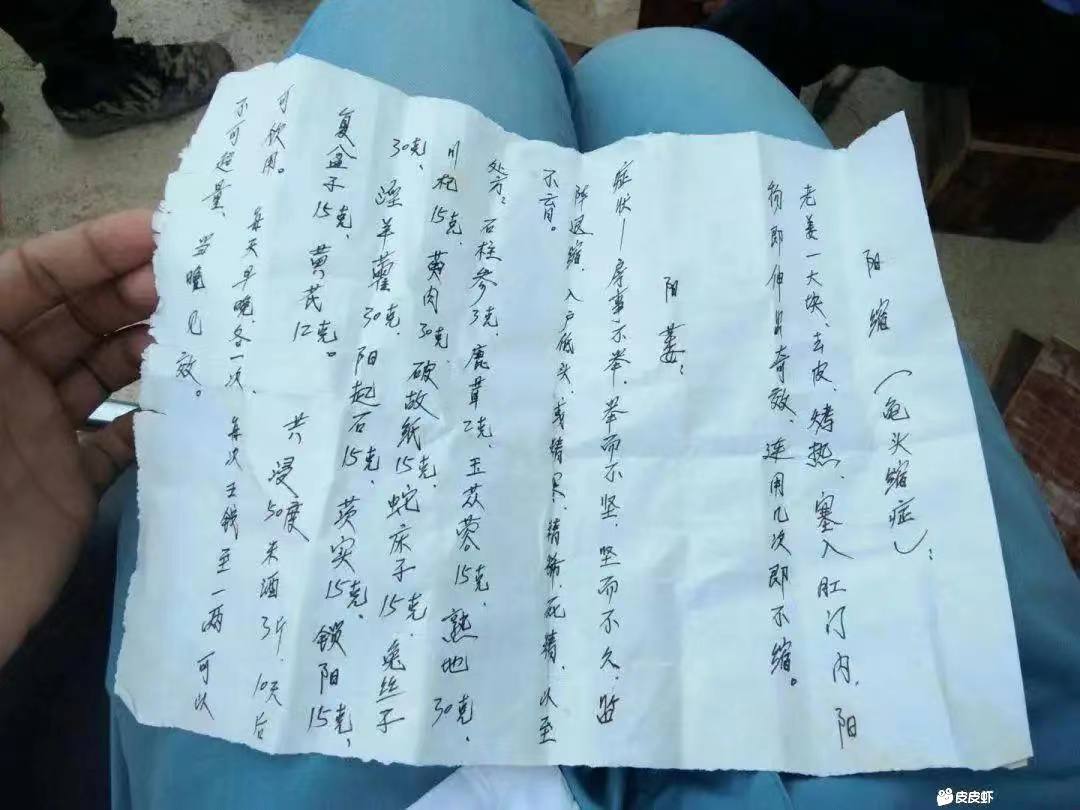 阳缩(龟头缩症):
老姜一大块、去皮、烤热、塞入肛门内,阳
即伸出奇效、连用几次即不缩。
阳萎:
症状—房事不举、举而不坚、坚而不久、
阵退缩、入户低头、或精、精稀、死精、以至
不育。
处方:石柱参3克、鹿茸2克、玉苁蓉15克、熟地30克、
川杞15克、萸肉30克、破故纸15克、蛇床子15克、兔丝子
30克、淫羊藿30克、阳起石15克、茨实15克、锁阳15克、
复盆子15克、黄芪12克。共浸50度米酒3斤.10天后
可饮用。每天早晚各一次、每次五钱至一两可以
不可超量、当晚见效。
皮皮虾